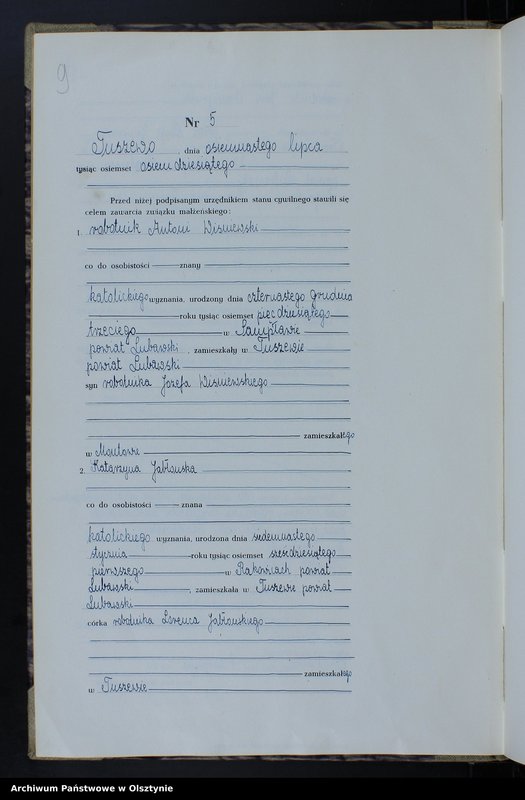 9
Nr 5
Tuszewo dnia osiemnastego lipca
tysiąc osiemset osiemdziesiątego
Przed niżej podpisanym urzędnikiem stanu cywilnego stawili się
celem zawarcia związku małżeńskiego:
1. robotnik Antoni Wiśniewski
co do osobistości znany
katolickiego wyznania, urodzony dnia czternastego grudnia
roku tysiąc osiemset pięćdziesiątego
trzeciego w Sampławie
powiat Lubawski, zamieszkały w Tuszewie
powiat Lubawski
syn robotnika Józefa Wiśniewskiego
zamieszkałego
w Montowie
2. Katarzyna Jabłońska
co do osobistości znana
katolickiego wyznania, urodzona dnia siedemnastego
stycznia roku tysiąc osiemset sześćdziesiątego
pierwszego w Rakowicach powiat
Lubawski, zamieszkała w Tuszewie powiat
Lubawski
córka robotnika Lorenca Jabłońskiego
zamieszkałego
w Tuszewie
Archiwum Państwowe w Olsztynie